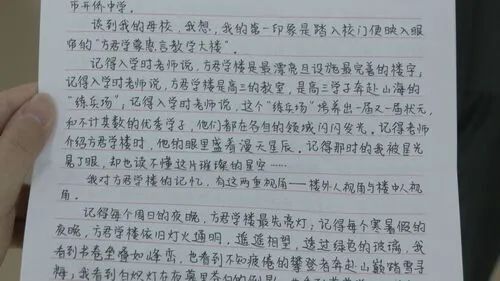 市开侨中学。
谈到我的母校，我想，我的第一印象是踏入校门便映入眼
帘的“方君学尊惠言教学大楼”。
记得入学时老师说，方君学楼是最漂亮且设施最完善的楼宇；
记得入学时老师说，方君学楼是高三的教室，是高三学子奔赴山海的
“练兵场”；记得入学时老师说，这个“练兵场”培养出一届又一届状元
和不计其数的优秀学子，他们都在各自的领域闪闪发光。记得老师
介绍方君学楼时，他的眼里盛着漫天星辰。记得那时的我被星光
晃了眼，却也读不懂这片璀璨的星空……
我对方君学楼的记忆，有这两重视角——楼外人视角与楼中人视
角。
记得每个周日的夜晚，方君学楼最先亮灯；记得每个寒暑假的
夜晚，方君学楼依旧灯火通明，遥遥相望，透过绿色的玻璃，我
看到书卷垒叠如峰峦，也看到不知疲倦的攀登者奔赴山巅踏雪寻
梅；我看到白炽灯在夜幕里